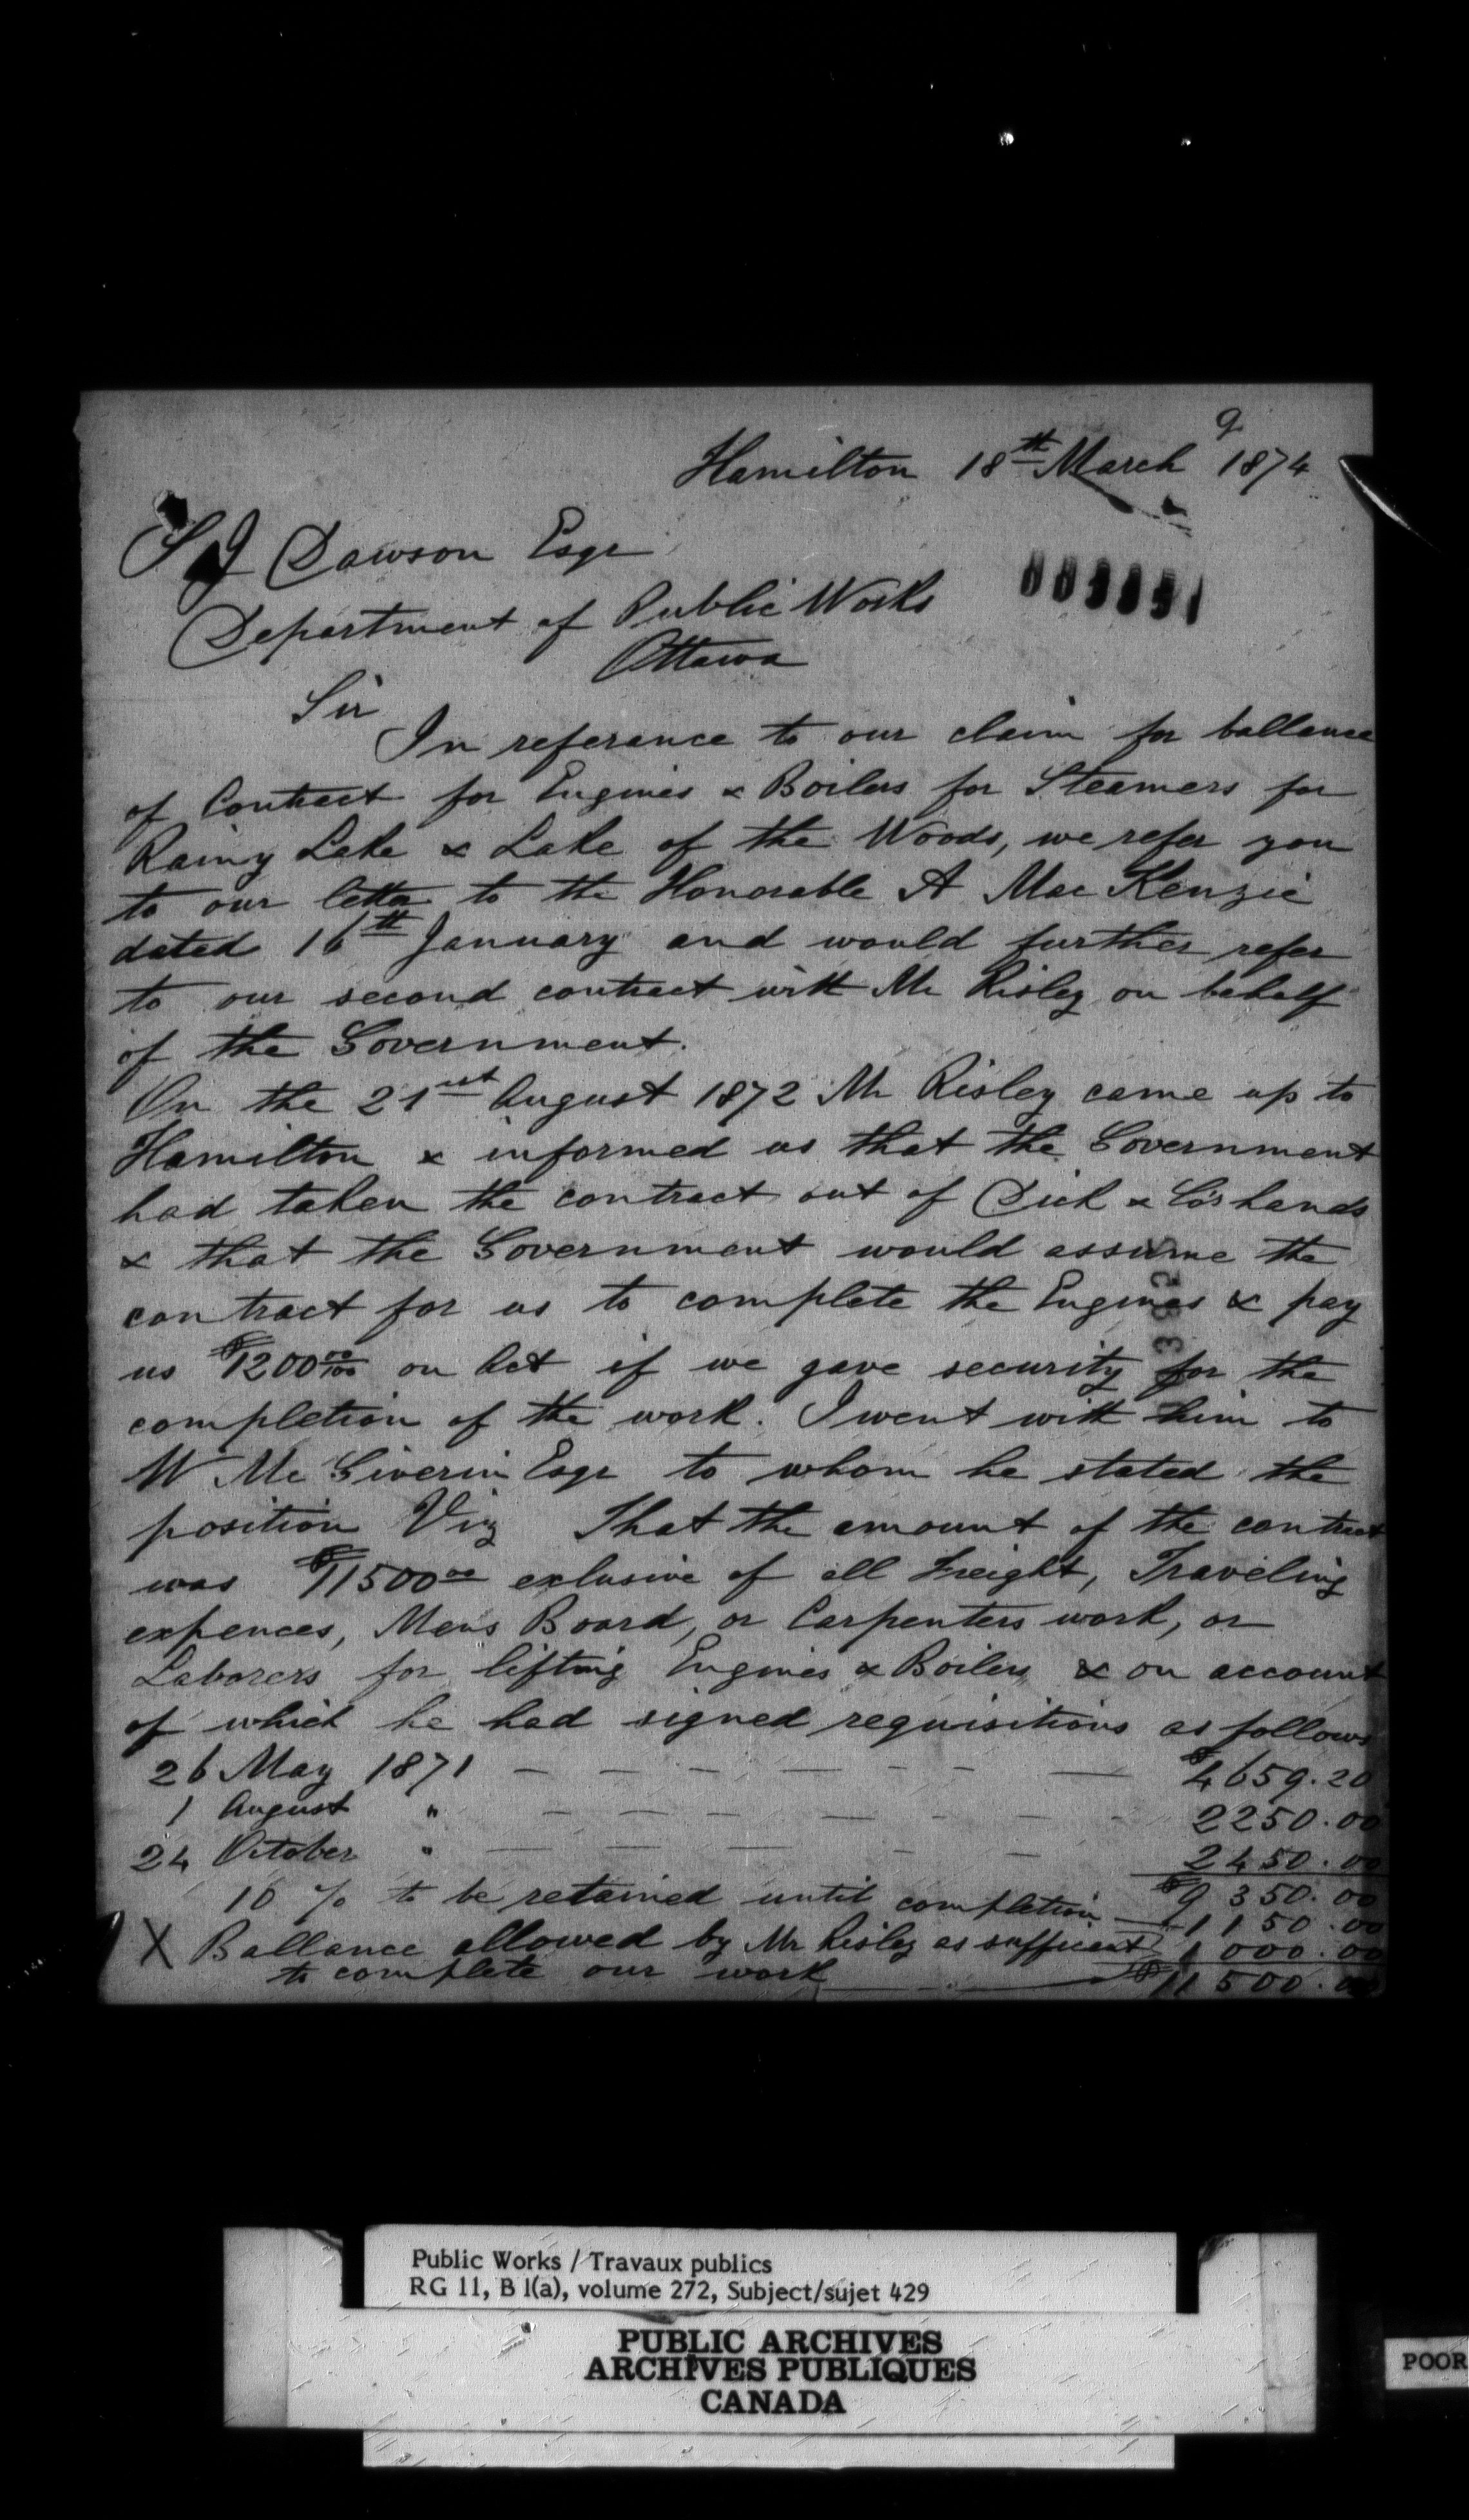 9
Hamilton 18th March 1874
S J Dawson Esqr
Department of Public Works
Ottawa
Sir
In referance to our claim for ballance
of Contract for Engines & Boilers for Steamers for
Rainy Lake & Lake of the Woods, we refer you
to our letter to the Honorable A MacKenzie
dated 16th January and would further refer
to our second contract with Mr Risley on behalf
of the Government.
On the 21st August 1872 Mr Risley came up to
Hamilton & informed us that the Government
had taken the contract out of Dick & Co's hands
& that the Government would assume the
contract for us to complete the Engines & pay
us $1200 00/100 on Act if we gave security for the
completion of the work. I went with him to
W McGiverin Esqr to whom he stated the
position Viz That the amount of the contract
was $11500 00 exlusive of all Freight, Traveling
expences, Mens Board, or Carpenters work, or
Laborers for lifting Engines & Boilers & on account
of which he had signed requisitions as follows
26 May 1871 — — — — — — — $4659.20
1 August " — — — — — — — 2250.00
24 October " — — — — — — 2450.00
$9350.00
10 % to be retained until completion — 1150.00
X Ballance allowed by Mr Risley as sufficent 1000.00
to complete our work — — — $11500.00
Public Works / Travaux publics
RG 11, B 1(a), volume 272, Subject/sujet 429
PUBLIC ARCHIVES
ARCHIVES PUBLIQUES
CANADA
POOR